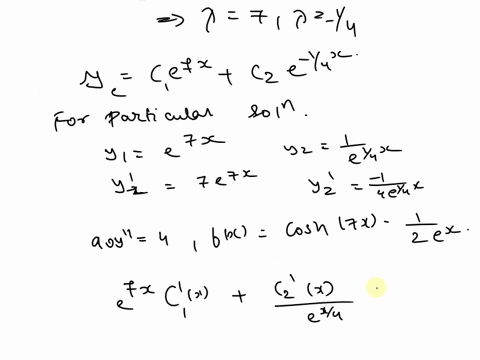 ⇒ λ = 7, λ = -1/4
y_c = C₁e^{7x} + C₂ e^{-1/4 x}.
For particular solⁿ.
y₁ = e^{7x}   y₂ = 1/e^{1/4 x}
y₁' = 7e^{7x}   y₂' = -1/4e^{1/4 x}
a₀y'' = 4, b(x) = cosh(7x) - 1/2 e^x.
e^{7x} C₁'(x) + C₂'(x)/e^{x/4}